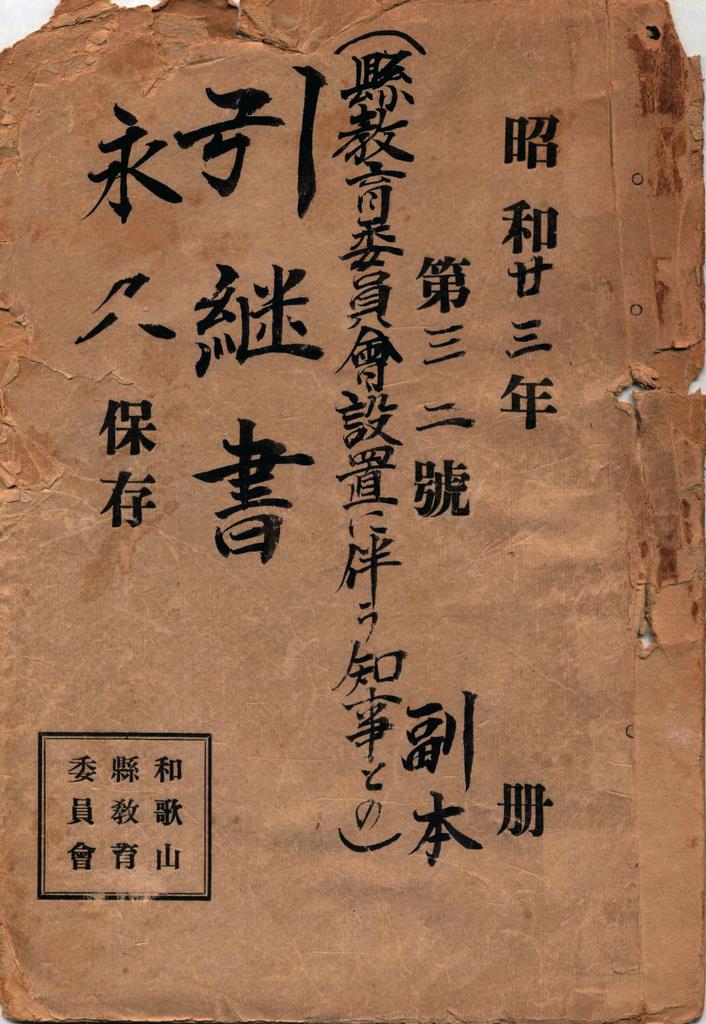 昭和廿三年 册
第三二號 副本
(縣教育委員會設置に伴う知事との)
引継書
永久保存
和歌山
縣教育
委員會